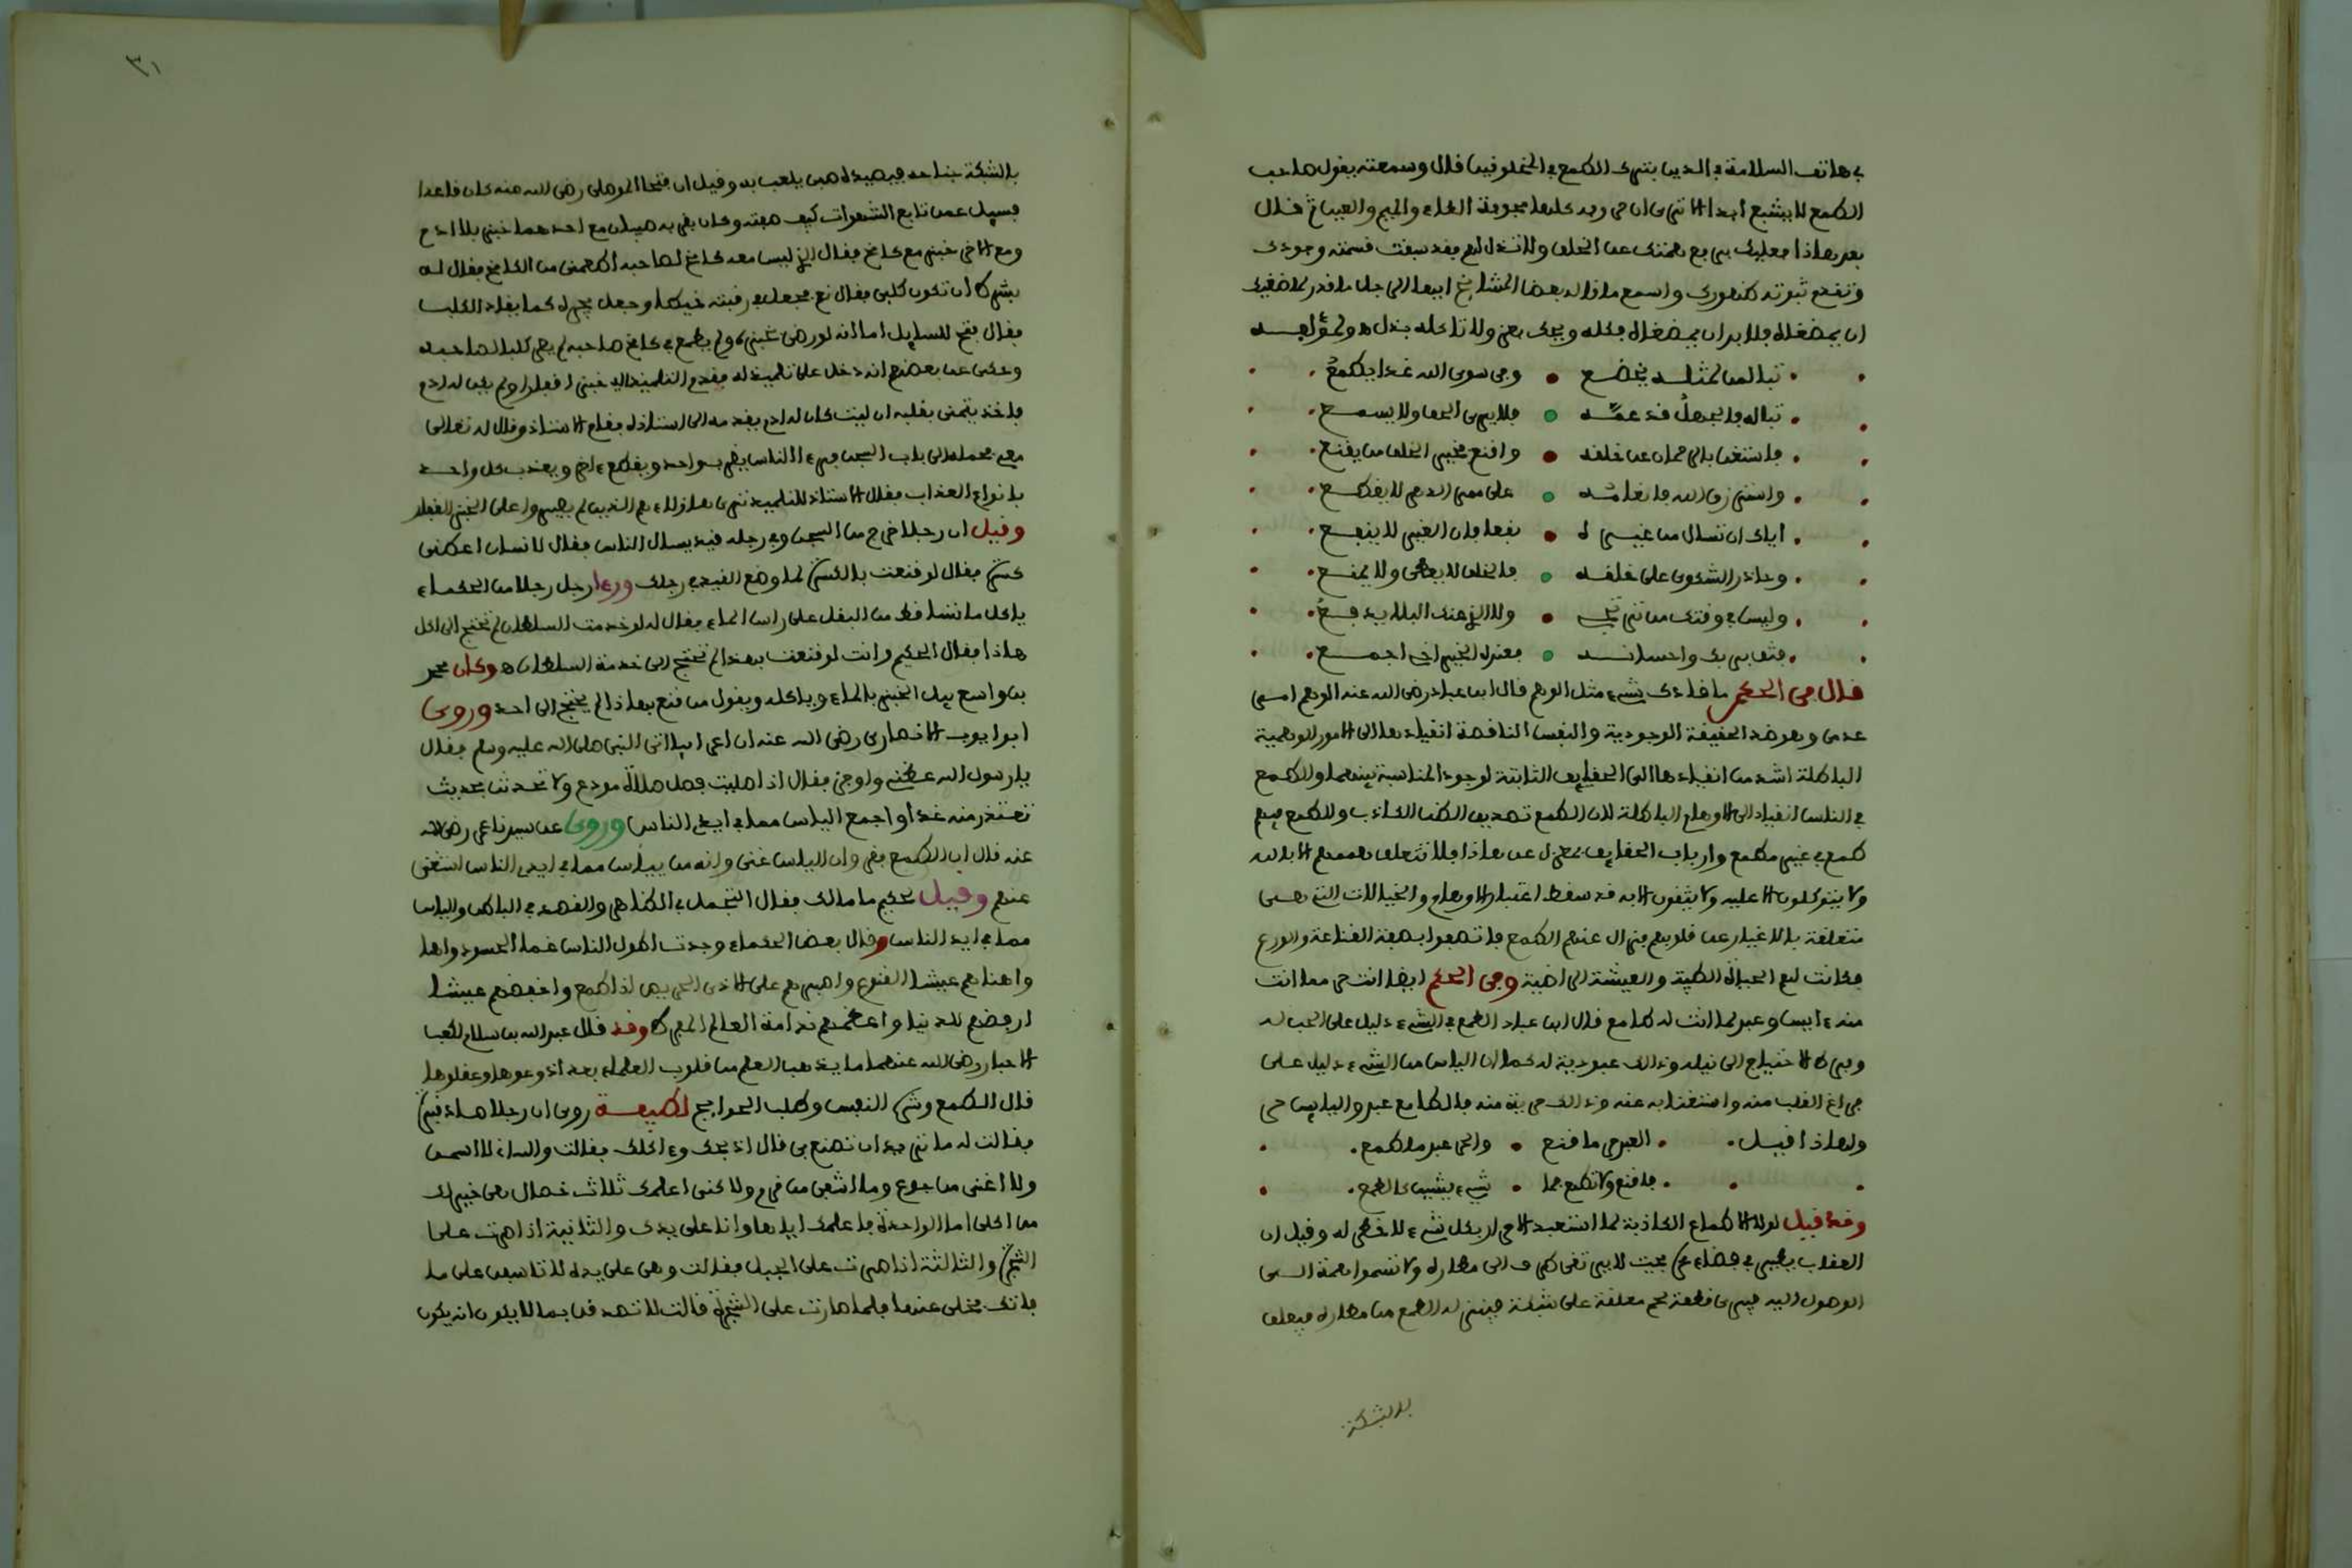 بي هاتف السلامة في الدين بترك الطمع في المخلوقين قال وسمعته يقول صاحب
الطمع لا يشبع ابدا الا ترى ان حروفه كلها مجوفة الطاء والميم والعين ثم قال
بعد هاذا فعليك برفع همتك عن الخلق ولا تذل لهم فقد سبقت قسمته وجودك
وتقدم ثبوته ظهورك واسمع ما قاله بعض المشايخ ايها الرجل ما قدر لماضغيك
ان يمضغاه فلا بد ان يمضغاه فكله ويحك بعز ولا تاكله بذل
تبا لمن لمثله يخضع وفي سوى الله غدا يطمع
تبا له فالجهل قد عمه فلا يرى الحق ولا يسمع
فاستغن بالرحمان عن خلقه واقنع فخير الخلق من يقنع
واسترزق الله فانعامه على ممر الدهر لا يقطع
اياك ان تسال من غيره نفعا فان الغير لا ينفع
وحاذر الشكوى على خلقه فالخلق لا يعطي ولا يمنع
وليس في وقتك من ترتجي ولا الذي عنك البلا يدفع
فثق بربك واحسانه فعنده الخير اخي اجمع
قال في الحكم ما قادك شيء مثل الوهم قال ابن عباد رضي الله عنه الوهم امر
عدمي وهو ضد الحقيقة الوجودية والنفس الناقصة انقيادها الى الامور الوهمية
الباطلة اشد من انقيادها الى الحقايق الثابتة لوجود المناسبة بينهما والطمع
في الناس انقياد الى الاوهام الباطلة لان الطمع تصديق الظن الكاذب والطمع فيهم
طمع في غير مطمع وارباب الحقايق بمعزل عن هاذا فلا تتعلق هممهم الا بالله
ولا يتوكلون الا عليه ولا يثقون الا به قد سقط اعتبار الاوهام والخيالات التي هي
متعلقة بالاغيار عن قلوبهم فزال عنهم الطمع فاتصفوا بصفة القناعة والورع
فكانت لهم الحياة الطيبة والعيشة الراضية وفي الحكم ايضا انت حر مما انت
منه ءايس وعبد لما انت له طامع قال ابن عباد الطمع في الشيء دليل على الحب له
وفرط الاحتياج الى نيله وذلك عبودية له كما ان الياس من الشيء دليل على
فراغ القلب منه واستغنايه عنه وذلك حرية منه فالطامع عبد والايس حر
ولهاذا قيل العبد حر ما قنع والحر عبد ما طمع
فاقنع ولا تطمع فما شيء يشين كالطمع
وقد قيل لولا الاطماع الكاذبة لما استعبد الاحرار بكل شيء لا خطر له وقيل ان
العقاب يطير في فضاء عز بحيث لا يرتقي طرف الى مطاره ولا تسموا همة الى
الوصول اليه فيرى قطعة لحم معلقة على شبكة فينزل له الطمع من مطاره فيعلق
بالشبكة
٣١
بالشبكة جناحه فيصيده صبي يلعب به وقيل ان فتحا الموصلي رضي الله عنه كان قاعدا
فسيل عمن تابع الشهوات كيف صفته وكان بقربه صبيان مع احدهما خبز بلا ادم
ومع الاخر خبز مع كامخ فقال الذي ليس معه كامخ لصاحبه اطعمني من الكامخ فقال له
بشرط ان تكون كلبي فقال نعم فجعل في رقبته خيطا وجعل يجره كما يقاد الكلب
فقال فتح للسايل اما انه لو رضي بخبزه ولم يطمع في كامخ صاحبه لم يصر كلبا لصاحبه
وحكي عن بعضهم انه دخل على تلميذ له فقدم التلميذ اليه خبزا قفارا ولم يكن له ادم
فاخذ يتمنى بقلبه ان ليت كان له ادم يقدمه الى استاذه فقام الاستاذ وقال له تعالى
معي فحمله الى باب السجن فرءا الناس يضرب واحد ويقطع ءاخر ويعذب كل واحد
بانواع العذاب فقال الاستاذ للتلميذ ترى هاولاء هم الذين لم يصبروا على الخبز القفار
وقيل ان رجلا خرج من السجن وفي رجله قيد يسال الناس فقال لانسان اعطني
كسرة فقال لو قنعت بالكسرة لما وضع القيد في رجلك ورءا رجل رجلا من الحكماء
ياكل ما تساقط من البقل على راس الماء فقال له لو خدمت السلطان لم تحتج الى اكل
هاذا فقال الحكيم وانت لو قنعت بهذا لم تحتج الى خدمة السلطان وكان محمد
بن واسع يبل الخبز بالماء وياكله ويقول من قنع بهاذا لم يحتج الى احد وروى
ابو ايوب الانصاري رضي الله عنه ان اعرابيا اتى النبي صلى الله عليه وسلم فقال
يا رسول الله عظني واوجز فقال اذا صليت فصل صلاة مودع ولا تحدثن بحديث
تعتذر منه غدا واجمع الياس مما في ايدي الناس وروى عن سيدنا عمر رضي الله
عنه قال ان الطمع فقر وان الياس غنى وانه من يياس مما في ايدي الناس استغنى
عنهم وقيل لحكيم ما مالك فقال التجمل في الظاهر والقصد في الباطن والياس
مما في ايدي الناس وقال بعض الحكماء وجدت اطول الناس غما الحسود
واهناهم عيشا القنوع واصبرهم على الاذى الحريص اذا طمع واخفضهم عيشا
ارفضهم للدنيا واعظمهم ندامة العالم المفرط وقد قال عبد الله بن سلام لكعب
الاحبار رضي الله عنهما ما يذهب العلم من قلوب العلماء بعد اذ وعوها وعقلوها
قال الطمع وشره النفس وطلب الحوايج لطيفة روي ان رجلا صاد قبرة
فقالت له ما تريد ان تصنع بي قال اذبحك وءاكلك فقالت والله اني لا اسمن
ولا اغني من جوع وما اشفي من قرم ولاكني اعلمك ثلاث خصال هي خير لك
من اكلي اما الواحدة فاعلمك اياها وانا على يدك والثانية اذا صرت على
الشجرة والثالثة اذا صرت على الجبل فقالت وهي على يده لا تاسفن على ما
فاتك فخلى عنها فلما صارت على الشجرة قالت لا تصدقن بما لا يكون انه يكون